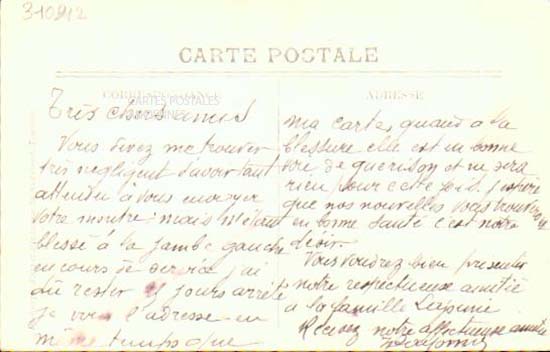 3-10912
CARTE POSTALE
CORRESPONDANCE
ADRESSE
CARTES POSTALES
ANCIENNES
Très chers amis
Vous devez me trouver
très négligent d'avoir tant
attendu à vous envoyer
votre montre mais m'étant
blessé à la jambe gauche
en cours de service j'ai
dû rester 15 jours arrêté
je vous l'adresse en
même temps que
ma carte, quand à la
blessure elle est en bonne
voie de guérison et ne sera
rien pour cette fois. J'espère
que nos nouvelles vous trouverons
en bonne santé c'est notre
désir.
Vous voudrez bien presenter
notre respectueuse amitié
a la famille
Recevez notre affectueuse amitié